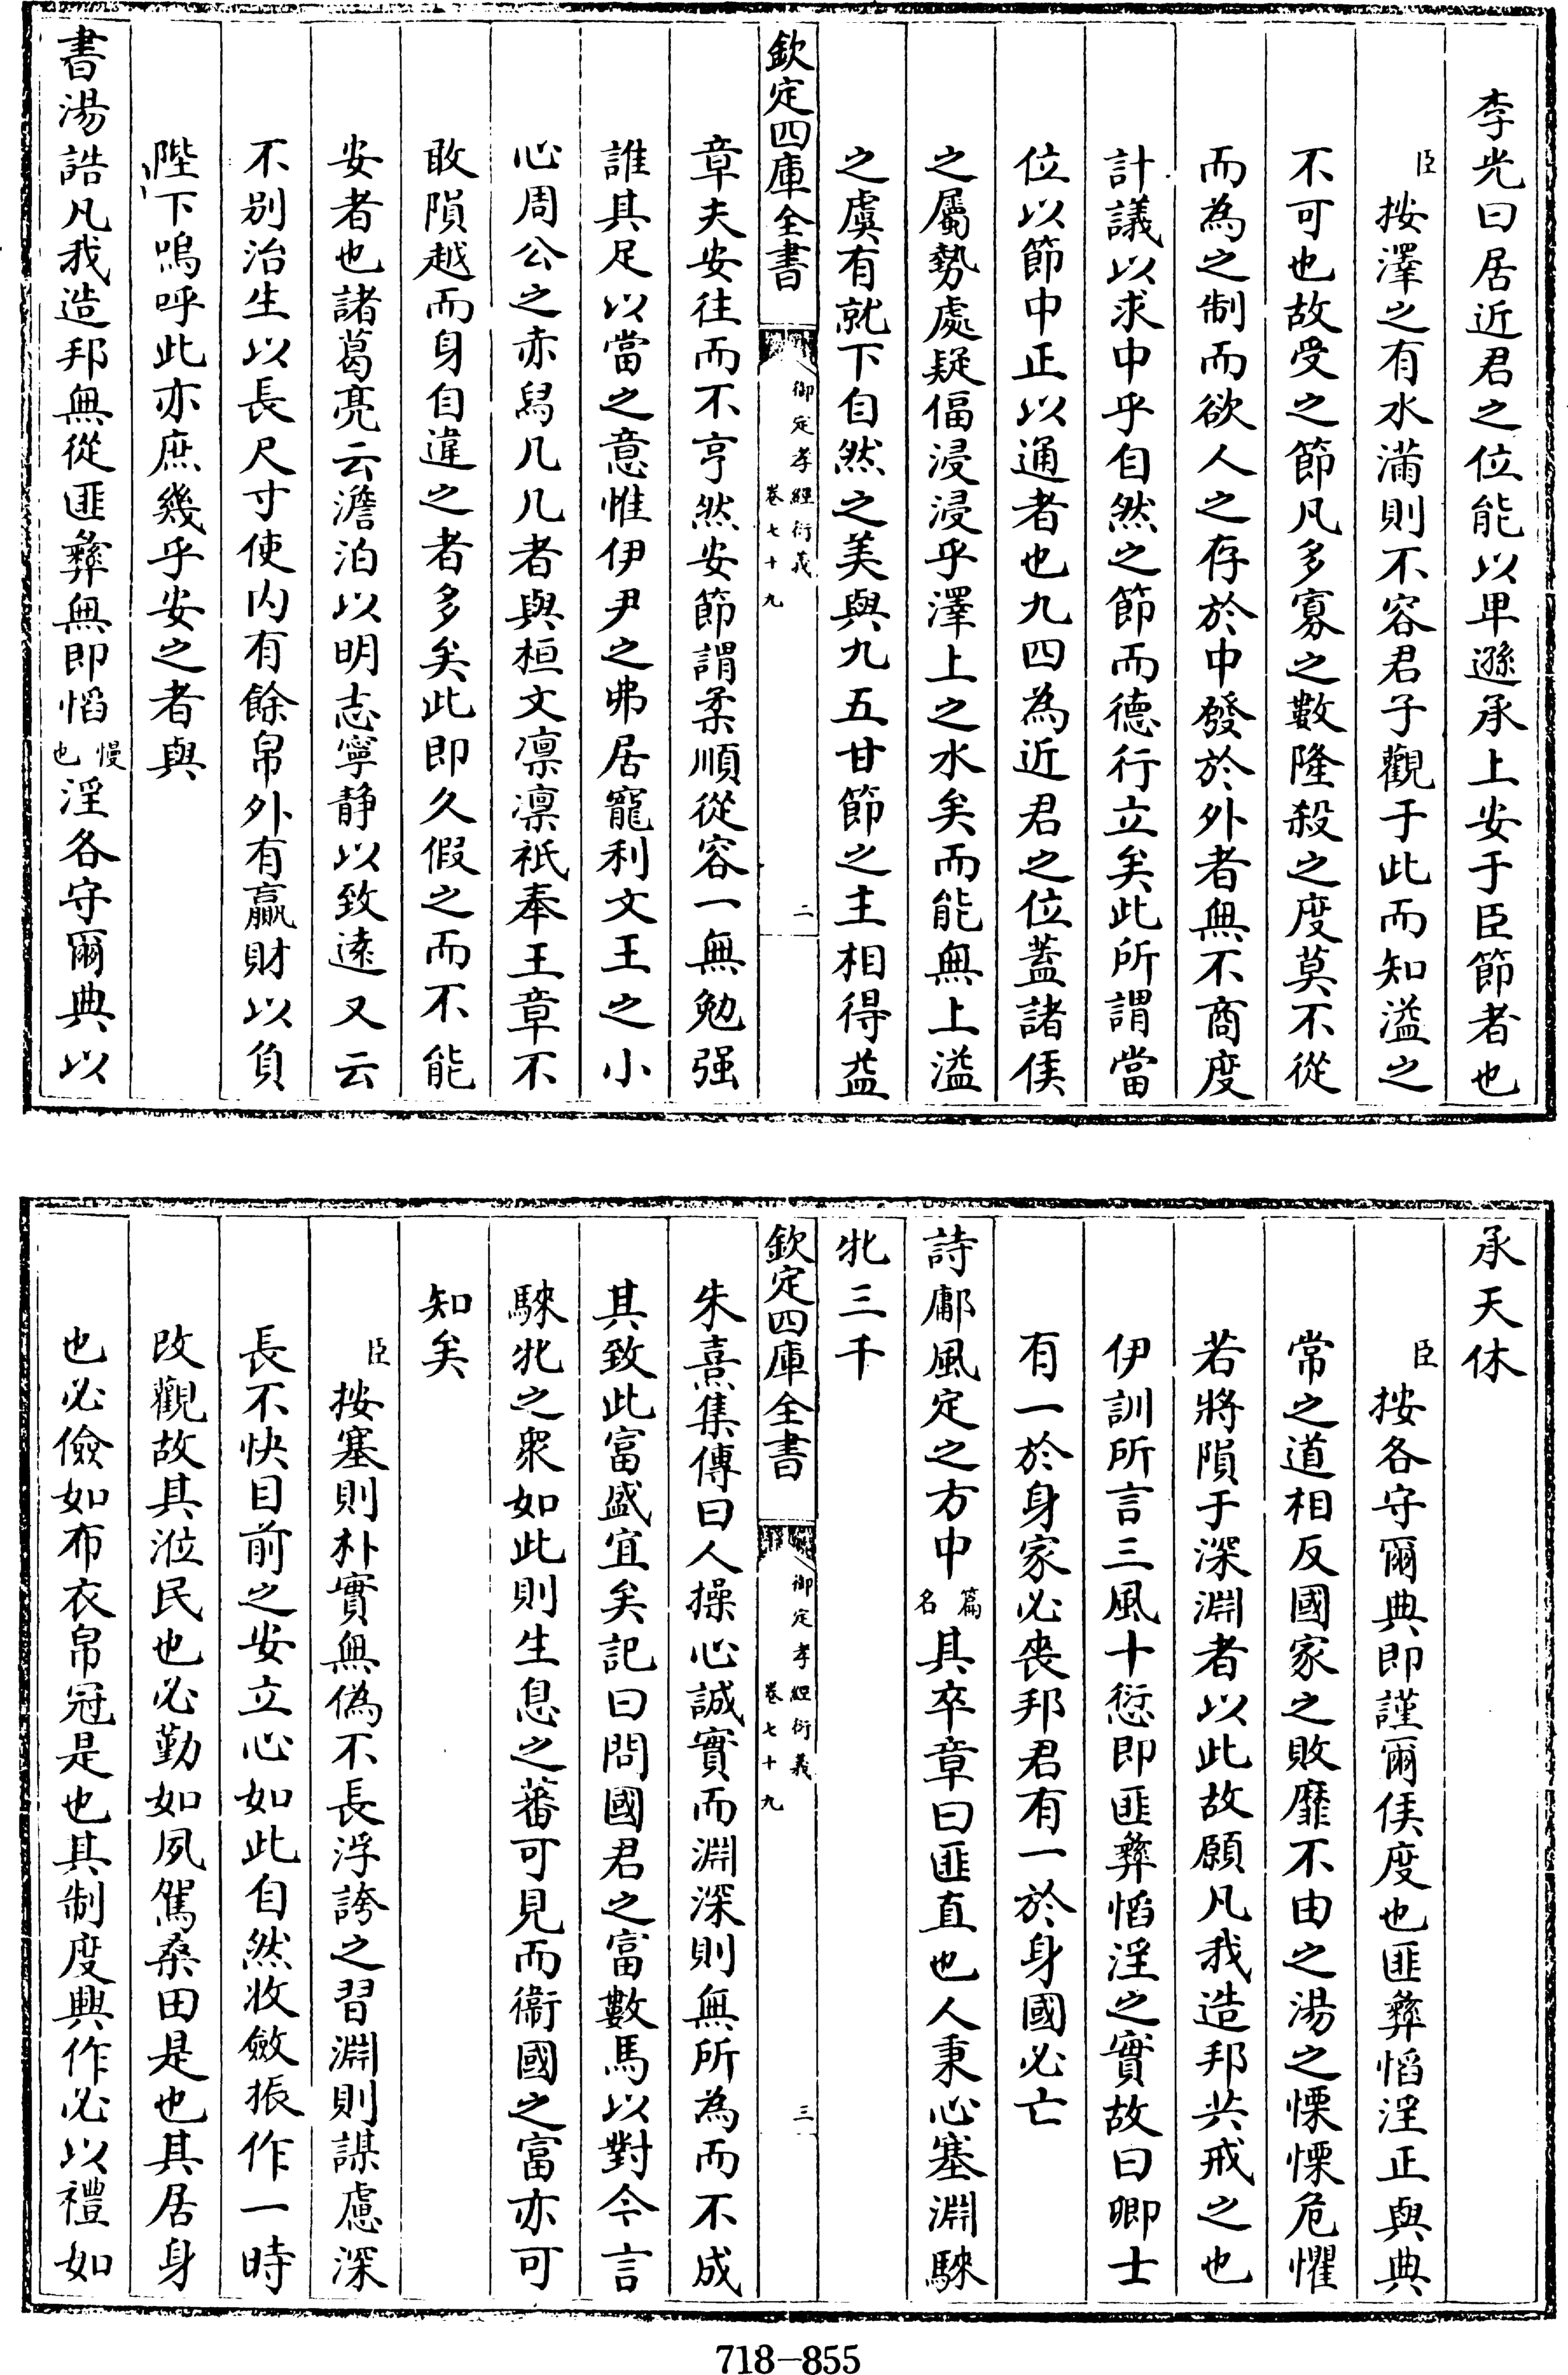 李光曰居近君之位能以卑遜承上安于臣節者也
臣按澤之有水滿則不容君子觀于此而知溢之
不可也故受之節凡多寡之數隆殺之度莫不從
而為之制而欲人之存於中發於外者無不商度
計議以求中乎自然之節而德行立矣此所謂當
位以節中正以通者也九四為近君之位蓋諸侯
之屬勢處疑偪浸浸乎澤上之水矣而能無上溢
之虞有就下自然之美與九五甘節之主相得益
欽定四庫全書
御定孝經衍義
卷七十九
二
章夫安往而不亨然安節謂柔順從容一無勉强
誰其足以當之意惟伊尹之弗居寵利文王之小
心周公之赤舄几几者與桓文凛凛祇奉王章不
敢隕越而身自違之者多矣此即久假之而不能
安者也諸葛亮云澹泊以明志寧静以致遠又云
不别治生以長尺寸使内有餘帛外有贏財以負
陛下嗚呼此亦庶幾乎安之者與
書湯誥凡我造邦無從匪彝無即慆慢也淫各守爾典以
承天休
臣按各守爾典即謹爾侯度也匪彝慆淫正與典
常之道相反國家之敗靡不由之湯之慄慄危懼
若將隕于深淵者以此故願凡我造邦共戒之也
伊訓所言三風十愆即匪彝慆淫之實故曰卿士
有一於身家必喪邦君有一於身國必亡
詩鄘風定之方中篇名其卒章曰匪直也人秉心塞淵騋
牝三千
欽定四庫全書
御定孝經衍義
卷七十九
三
朱熹集傳曰人操心誠實而淵深則無所為而不成
其致此富盛宜矣記曰問國君之富數馬以對今言
騋牝之衆如此則生息之蕃可見而衞國之富亦可
知矣
臣按塞則朴實無偽不長浮誇之習淵則謀慮深
長不快目前之安立心如此自然收斂振作一時
改觀故其涖民也必勤如夙駕桑田是也其居身
也必儉如布衣帛冠是也其制度興作必以禮如
718-855